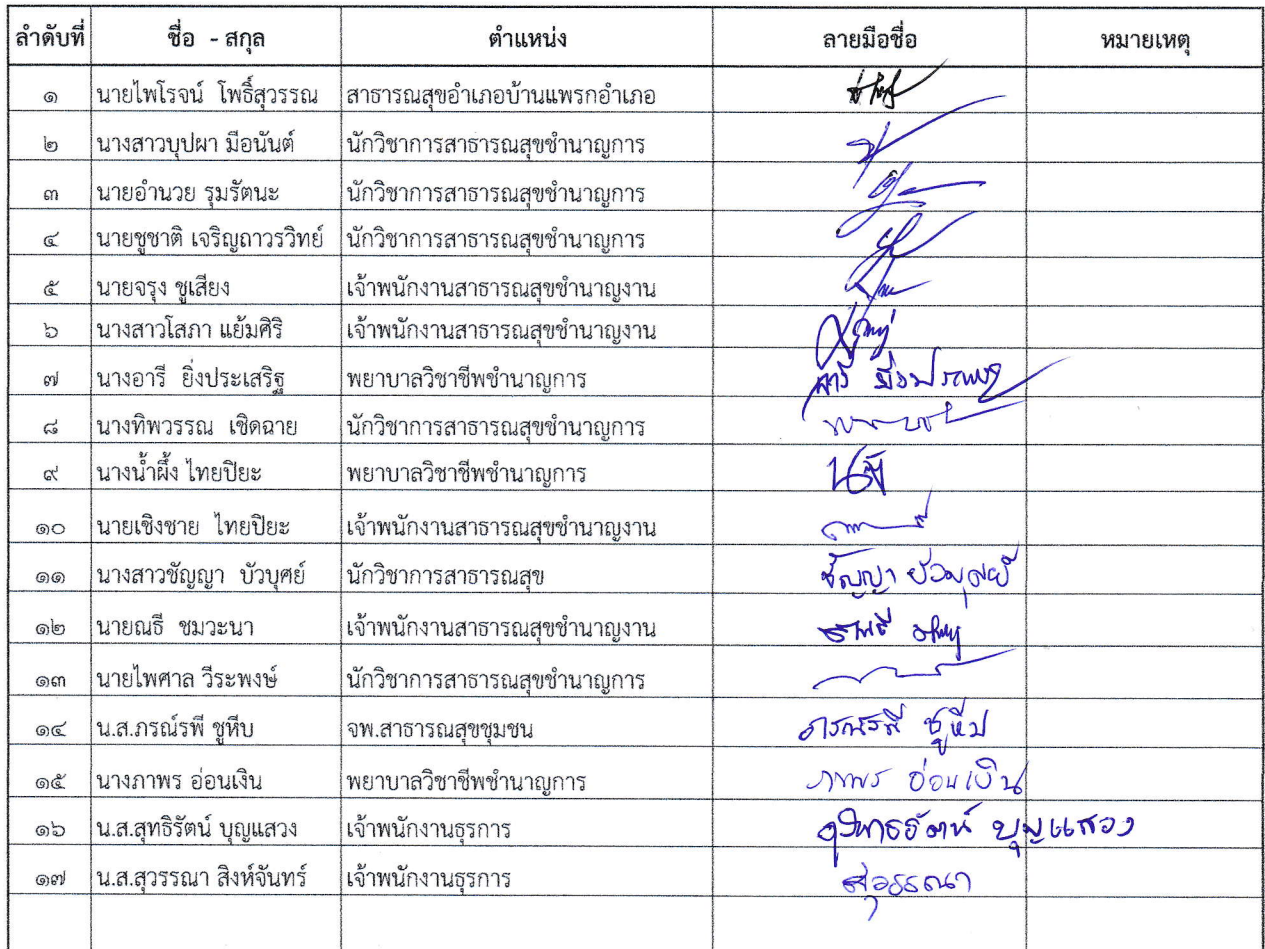 ลำดับที่ ชื่อ - สกุล ตำแหน่ง ลายมือชื่อ หมายเหตุ
๑ นายไพโรจน์ โพธิ์สุวรรณ สาธารณสุขอำเภอบ้านแพรกอำเภอ
๒ นางสาวบุปผา มีอนันต์ นักวิชาการสาธารณสุขชำนาญการ
๓ นายอำนวย รุมรัตนะ นักวิชาการสาธารณสุขชำนาญการ
๔ นายชูชาติ เจริญถาวรวิทย์ นักวิชาการสาธารณสุขชำนาญการ
๕ นายจรุง ชูเสียง เจ้าพนักงานสาธารณสุขชำนาญงาน
๖ นางสาวโสภา แย้มศิริ เจ้าพนักงานสาธารณสุขชำนาญงาน
๗ นางอารี ยิ่งประเสริฐ พยาบาลวิชาชีพชำนาญการ อารี
๘ นางทิพวรรณ เชิดฉาย นักวิชาการสาธารณสุขชำนาญการ
๙ นางน้ำผึ้ง ไทยปิยะ พยาบาลวิชาชีพชำนาญการ
๑๐ นายเชิงชาย ไทยปิยะ เจ้าพนักงานสาธารณสุขชำนาญงาน
๑๑ นางสาวชัญญา บัวบุศย์ นักวิชาการสาธารณสุข ชัญญา บัวบุศย์
๑๒ นายณธี ชมวะนา เจ้าพนักงานสาธารณสุขชำนาญงาน
๑๓ นายไพศาล วีระพงษ์ นักวิชาการสาธารณสุขชำนาญการ
๑๔ น.ส.ภรณ์รพี ชูหีบ จพ.สาธารณสุขชุมชน ภรณ์รพี ชูหีบ
๑๕ นางภาพร อ่อนเงิน พยาบาลวิชาชีพชำนาญการ ภาพร อ่อนเงิน
๑๖ น.ส.สุทธิรัตน์ บุญแสวง เจ้าพนักงานธุรการ สุทธิรัตน์ บุญแสวง
๑๗ น.ส.สุวรรณา สิงห์จันทร์ เจ้าพนักงานธุรการ สุวรรณา